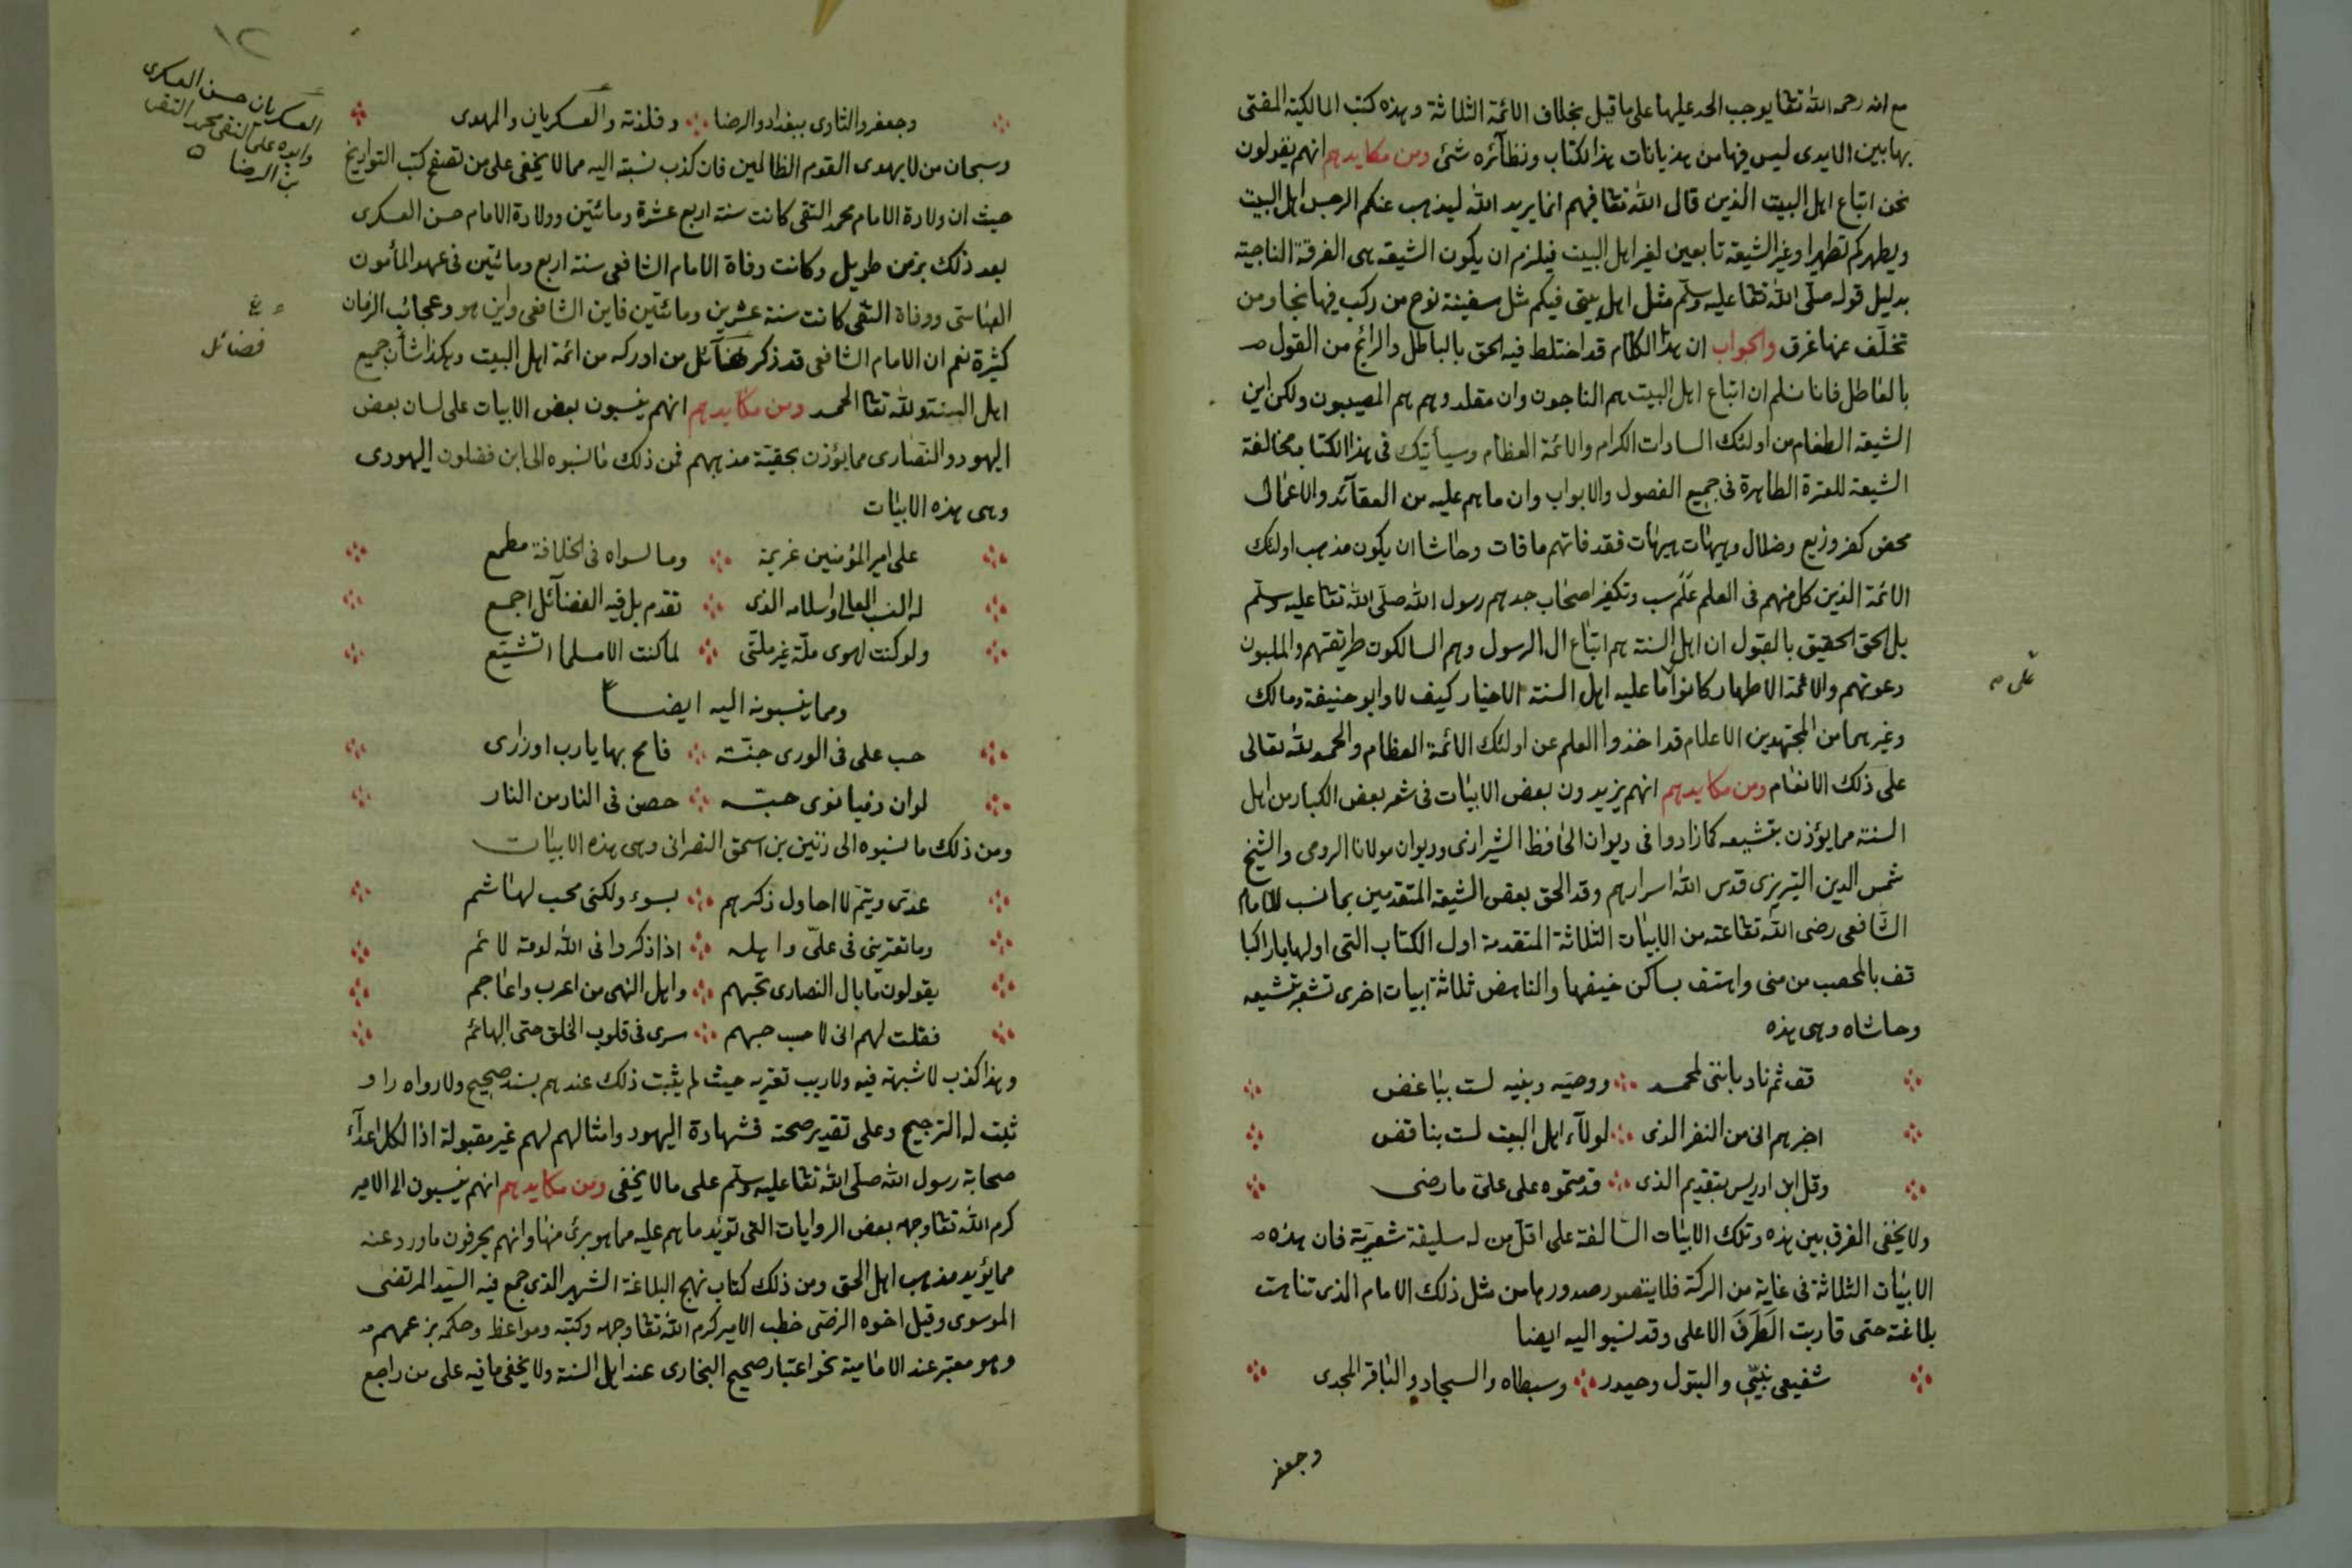 مع انه رحمه الله تعا يوجب الحد عليها على ما قيل بخلاف الائمة الثلاثة وهذه كتب المالكية المفتى
بها بين الايدى ليس فيها من هذيانات هذا الكتاب ونظآئره شئ ومن مكايدهم انهم يقولون
نحن اتباع اهل البيت الذين قال الله تعا فيهم انما يريد الله ليذهب عنكم الرجس اهل البيت
ويطهركم تطهيرا وغير الشيعة تابعين لغير اهل البيت فيلزم ان يكون الشيعة هى الفرقة الناجية
بدليل قوله صلى الله تعا عليه وسلم مثل اهل بيتى فيكم مثل سفينة نوح من ركب فيها نجا ومن
تخلف عنها غرق والجواب ان هذا الكلام قد اختلط فيه الحق بالباطل والرائج من القول
بالعاطل فانا نسلم ان اتباع اهل البيت هم الناجون وان مقلدوهم هم المصيبون ولكن اين
الشيعة الطغام من اولئك السادات الكرام والائمة العظام وسيأتيك فى هذا الكتاب مخالفة
الشيعة للعترة الطاهرة فى جميع الفصول والابواب وان ما هم عليه من العقآئد والاعمال
محض كفر وزيع وضلال وهيهات هيهات فقد فاتهم ما فات وحاشا ان يكون مذهب اولئك
الائمة الذين كل منهم فى العلم علم سب وتكفير اصحاب جدهم رسول الله صلى الله تعا عليه وسلم
بل الحق الحقيق بالقبول ان اهل السنة هم اتباع ال الرسول وهم السالكون طريقتهم والملبون
دعوتهم والائمة الاطهار كانوا ما عليه اهل السنة الاخيار كيف لا وابو حنيفة ومالك
على
وغيرهما من المجتهدين الاعلام قد اخذوا العلم عن اولئك الائمة العظام والحمد لله تعالى
على ذلك الانعام ومن مكايدهم انهم يزيدون بعض الابيات فى شعر بعض الكبار من اهل
السنة مما يؤذن بتشيعه كما زادوا فى ديوان الحافظ الشيرازى وديوان مولانا الرومى والشيخ
شمس الدين التبريزى قدس الله اسرارهم وقد الحق بعض الشيعة المتقدمين بما نسب للامام
الشافعى رضى الله تعا عنه من الابيات الثلاثة المتقدمة اول الكتاب التى اولها يا راكبا
قف بالمحصب من منى واهتف بساكن خيفها والناهض ثلاثة ابيات اخرى تشعر بتشيعه
وحاشاه وهى هذه
قف ثم ناد باننى لمحمد ووصيه وبنيه لست بباغض
اخبرهم انى من النفر الذى لولآء اهل البيت لست بناقض
وقل ابن ادريس بتقديم الذى قدمتموه على على ما رضى
ولا يخفى الفرق بين هذه وتلك الابيات السالفة على اقل من له سليقة شعرية فان هذه
الابيات الثلاثة فى غاية من الركة فلا يتصور صدورها من مثل ذلك الامام الذى تناهت
بلاغته حتى قاربت الطرف الاعلى وقد نسبوا اليه ايضا
شفيعى نبيى والبتول وحيدر وسبطاه والسجاد والباقر المجدى
وجعفر
١٢
وجعفر والثاوى ببغداد والرضا وفلذته والعسكريان والمهدى
العسكريان حسن العسكرى
وابوه على النقى بن محمد التقى
بن الرضا
وسبحان من لا يهدى القوم الظالمين فان كذب نسبته اليه مما لا يخفى على من تصفح كتب التواريخ
حيث ان ولادة الامام محمد التقى كانت سنة اربع عشرة ومائتين وولادة الامام حسن العسكرى
بعد ذلك بزمن طويل وكانت وفاة الامام الشافعى سنة اربع ومائتين فى عهد المأمون
العباسى ووفاة التقى كانت سنة عشرين ومائتين فاين الشافعى واين هو وعجائب الزمان
كثيرة نعم ان الامام الشافعى قد ذكر فضآئل من ادركه من ائمة اهل البيت وهكذا شأن جميع
فضائل
اهل السنة ولله تعا الحمد ومن مكايدهم انهم ينسبون بعض الابيات على لسان بعض
اليهود والنصارى مما يؤذن بحقية مذهبهم فمن ذلك ما نسبوه الى ابن فضلون اليهودى
وهى هذه الابيات
على امير المؤمنين عزيمة وما لسواه فى الخلافة مطمع
له النسب العالى واسلامه الذى تقدم بل فيه الفضآئل اجمع
ولو كنت اهوى ملة غير ملتى لما كنت الا مسلما اتشيع
ومما ينسبونه اليه ايضا
حب على فى الورى جنة فامح بها يا رب اوزارى
لو ان ذميا نوى حبه حصن فى النار من النار
ومن ذلك ما نسبوه الى زنين بن اسحق النصرانى وهى هذه الابيات
عدى وتيم لا احاول ذكرهم بسوء ولكنى محب لهاشم
وما تعترينى فى على واهله اذا ذكروا فى الله لومة لائم
يقولون ما بال النصارى تحبهم واهل النهى من اعرب واعاجم
فقلت لهم انى لا حسب حبهم سرى فى قلوب الخلق حتى البهائم
وهذا كذب لا شبهة فيه ولا ريب تعتريه حيث لم يثبت ذلك عندهم بسند صحيح ولا رواه راو
ثبت له الترجيح وعلى تقدير صحته فشهادة اليهود وامثالهم لهم غير مقبولة اذا لكل اعدآء
صحابة رسول الله صلى الله تعا عليه وسلم على ما لا يخفى ومن مكايدهم انهم ينسبون الى الامير
كرم الله تعا وجهه بعض الروايات التى تؤيد ما هم عليه مما هو برئ منها وانهم يحرفون ما ورد عنه
مما يؤيد مذهب اهل الحق ومن ذلك كتاب نهج البلاغة الشهير الذى جمع فيه السيد المرتضى
الموسوى وقيل اخوه الرضى خطب الامير كرم الله تعا وجهه وكتبه ومواعظه وحكمه بزعمهم
وهو معتبر عند الامامية نحو اعتبار صحيح البخارى عند اهل السنة ولا يخفى ما فيه على من راجع